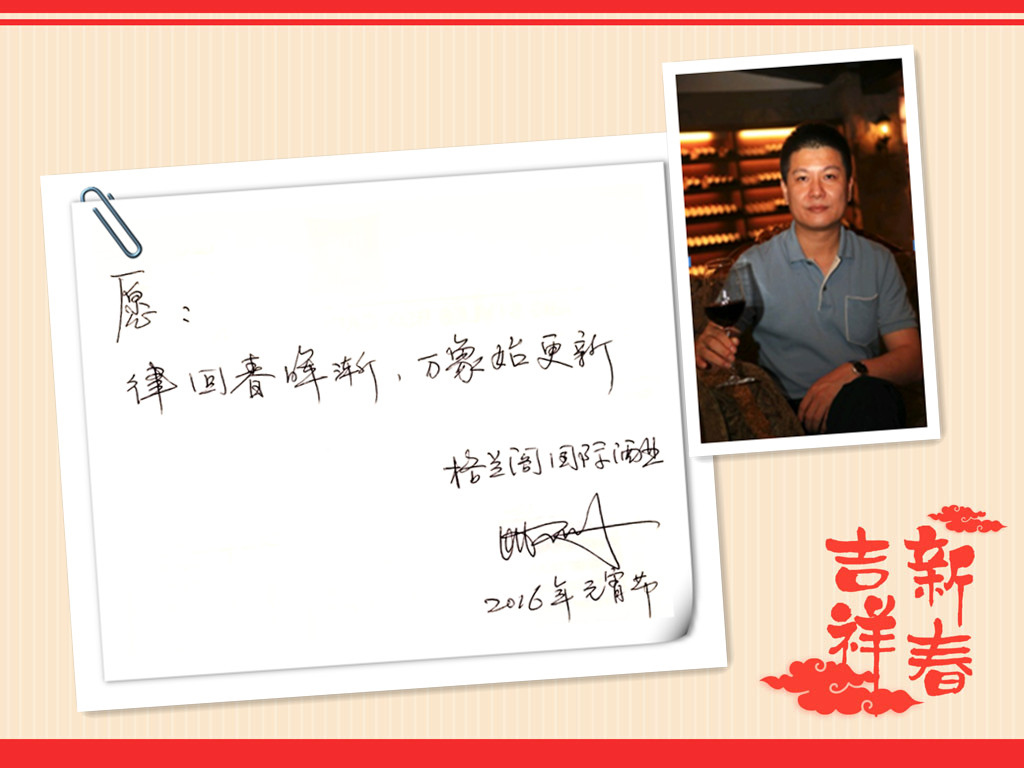 愿：
律回春晖渐，万象始更新
格兰阁国际酒业
2016年元宵节
新春
吉祥